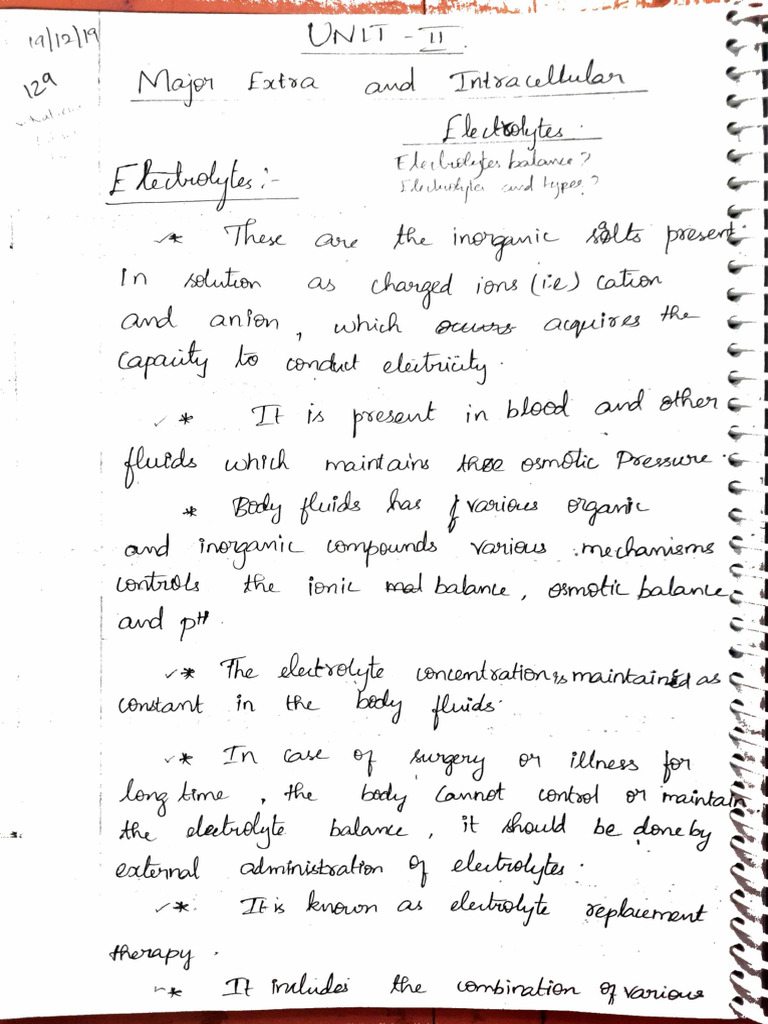 19/12/19
UNIT - II
129
Major Extra and Intracellular
Electrolytes.
Electrolytes balance?
Electrolytes and types?
Electrolytes :-
* These are the inorganic salts present
In solution as charged ions (i.e) cation
and anion, which occurs acquires the
capacity to conduct electricity.
* It is present in blood and other
fluids which maintains the osmotic Pressure.
* Body fluids has various organic
and inorganic compounds various mechanisms
controls the ionic balance, osmotic balance
and pH
* The electrolyte concentration is maintained as
constant in the body fluids.
* In case of surgery or illness for
long time, the body cannot control or maintain
the electrolyte balance, it should be done by
external administration of electrolytes.
* It is known as electrolyte replacement
therapy.
* It includes the combination of various